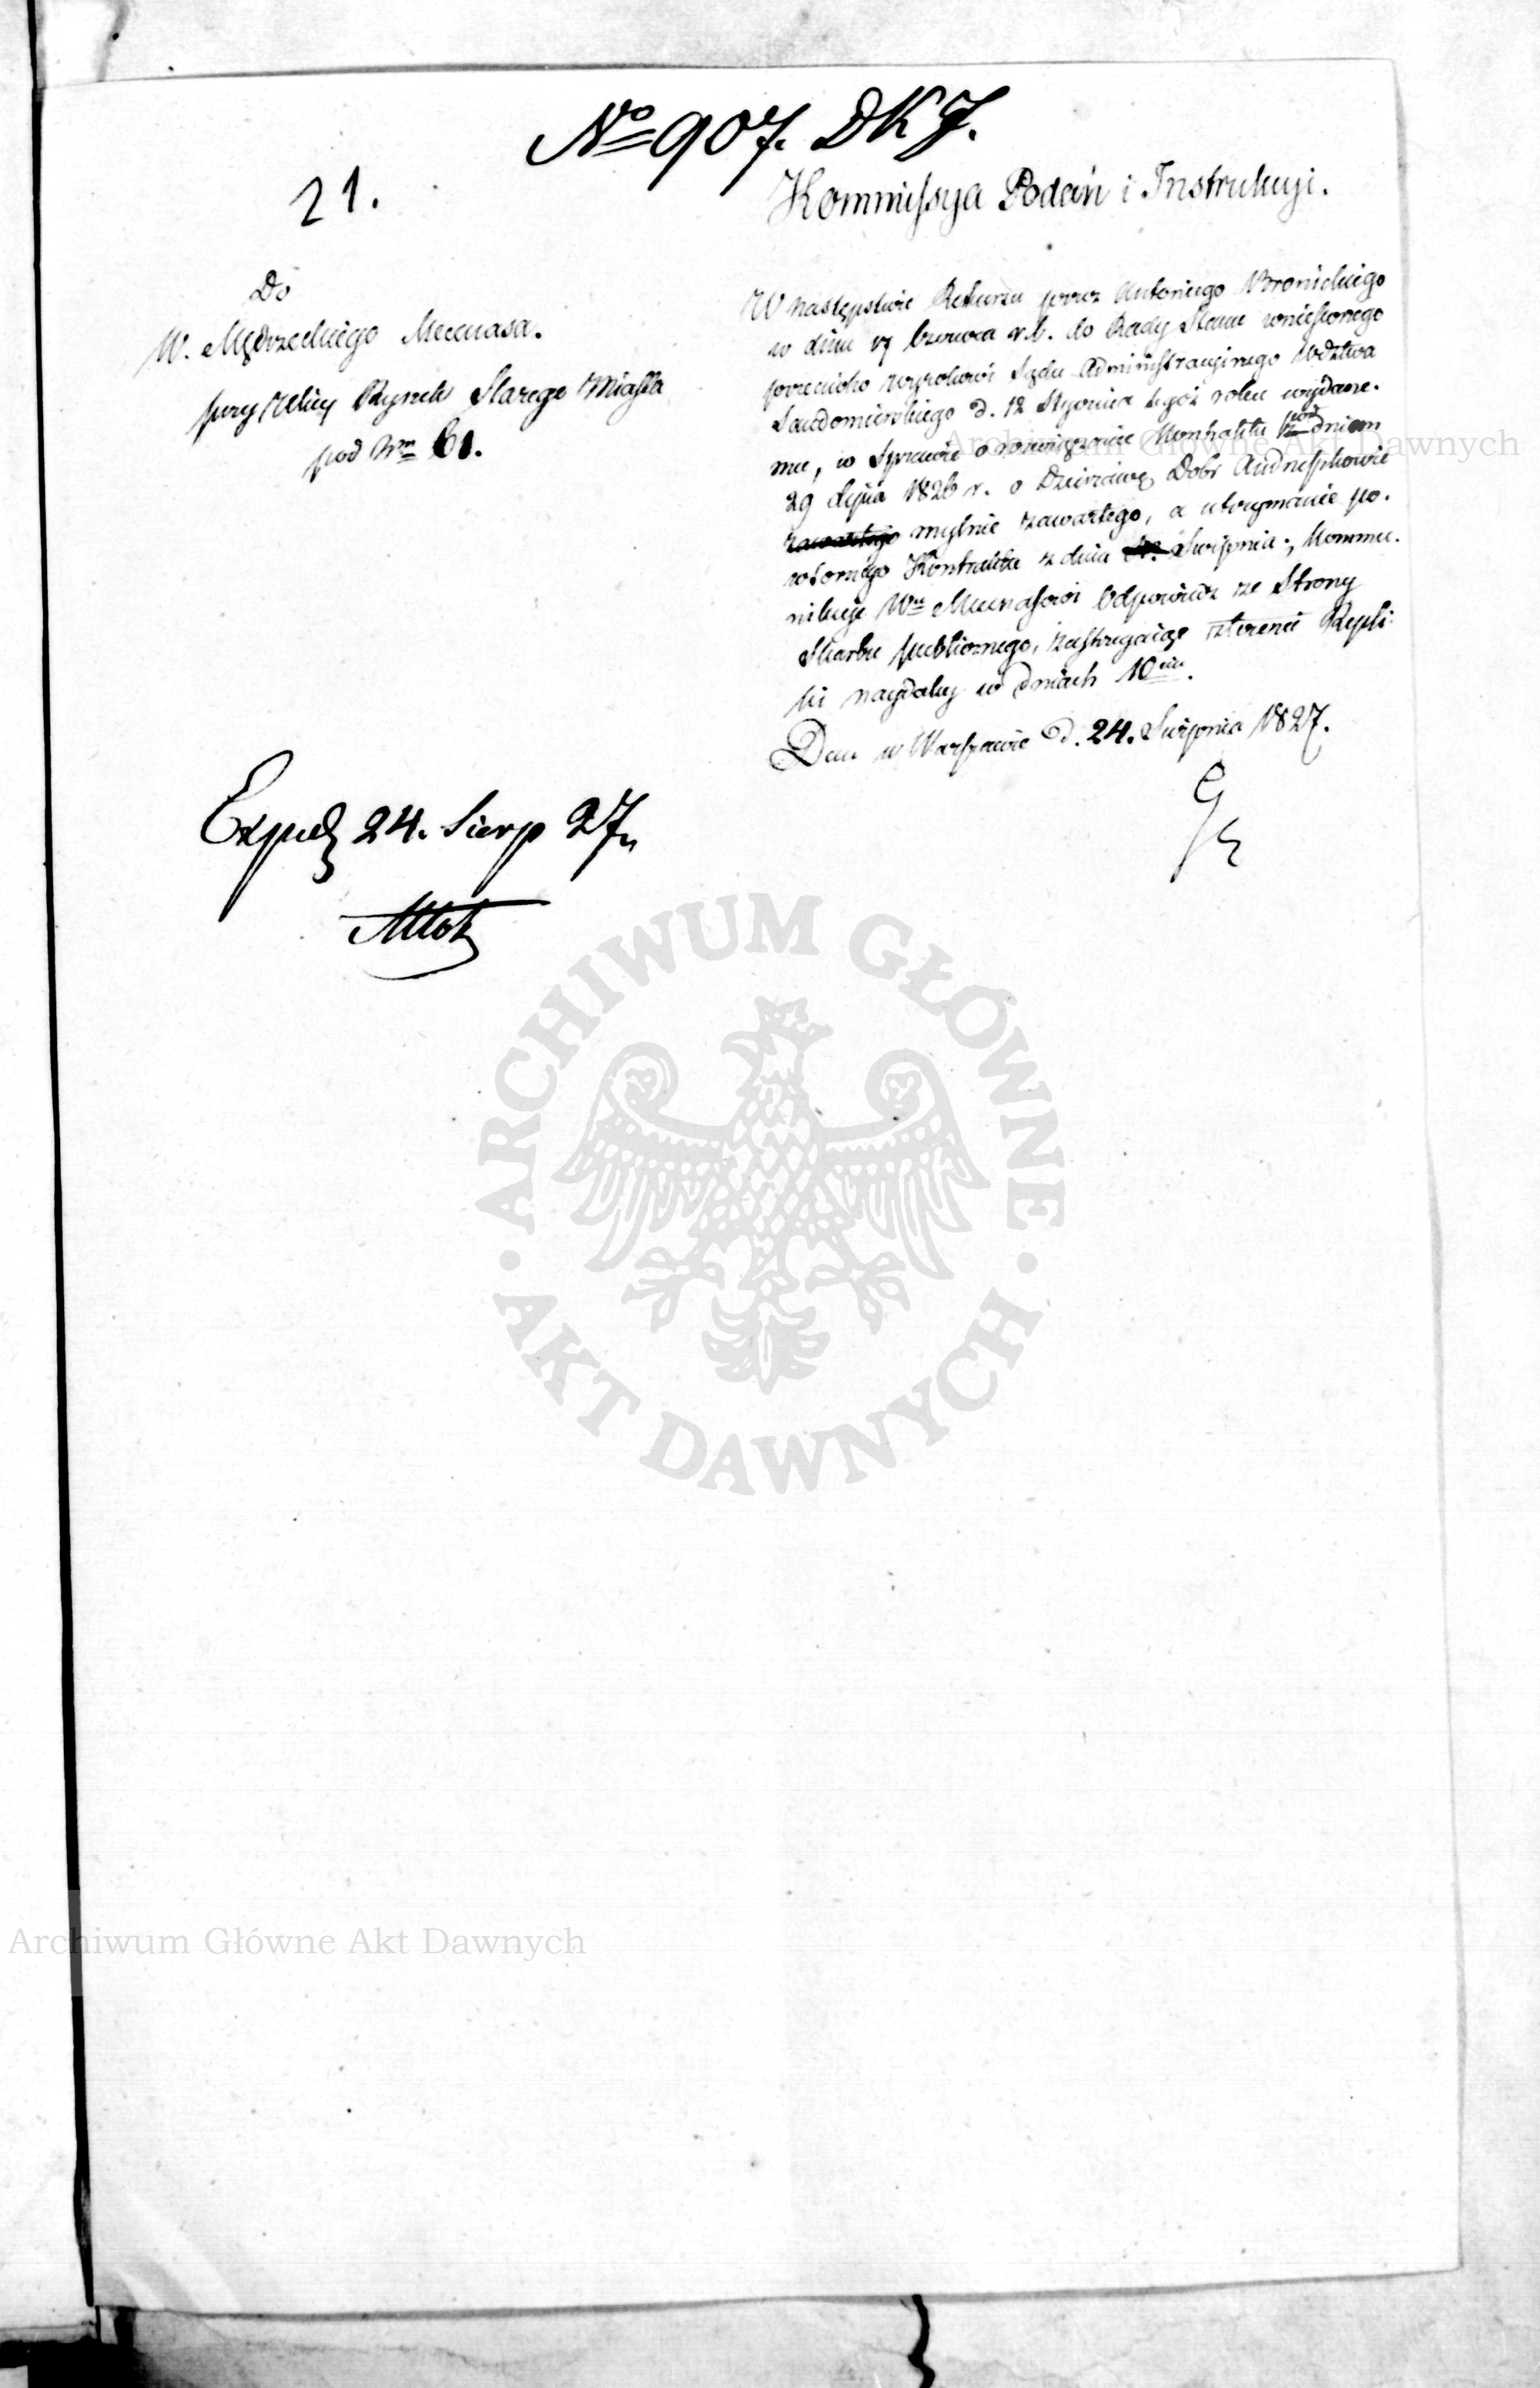 No 907. DKJ.
21.
Kommissya Podań i Instrukcyi.
Do
W. Mędrzeckiego Mecenasa.
przy Ulicy Rynek Starego Miasta
pod Nrm 61.
W następstwie Rekursu przez Antoniego Bronickiego
w dniu Czerwca r.b. do Rady Stanu wniesionego
przeciwko wyrokowi Sądu Administracyinego Wdztwa
Sandomierskiego d. 12 Stycznia tegoż roku wydane-
mu, w Sprawie o rozwiązanie Kontraktu pod dniem
29 Lipca 1826 r. o Dzierżawę Dobr
zawartego mylnie zawartego, a utrzymanie po-
wtornego Kontraktu z dnia Sierpnia, Kommu-
nikuje Wmu Mecenasowi Odpowiedź ze Strony
Skarbu publicznego, zastrzegaiąc złożenie Repli-
ki naydaley w dniach 10ciu.
Dan w Warszawie d. 24. Sierpnia 1827.
Exped 24. Sierp 27.
Archiwum Główne Akt Dawnych
ARCHIWUM GŁÓWNE
AKT DAWNYCH
Archiwum Główne Akt Dawnych